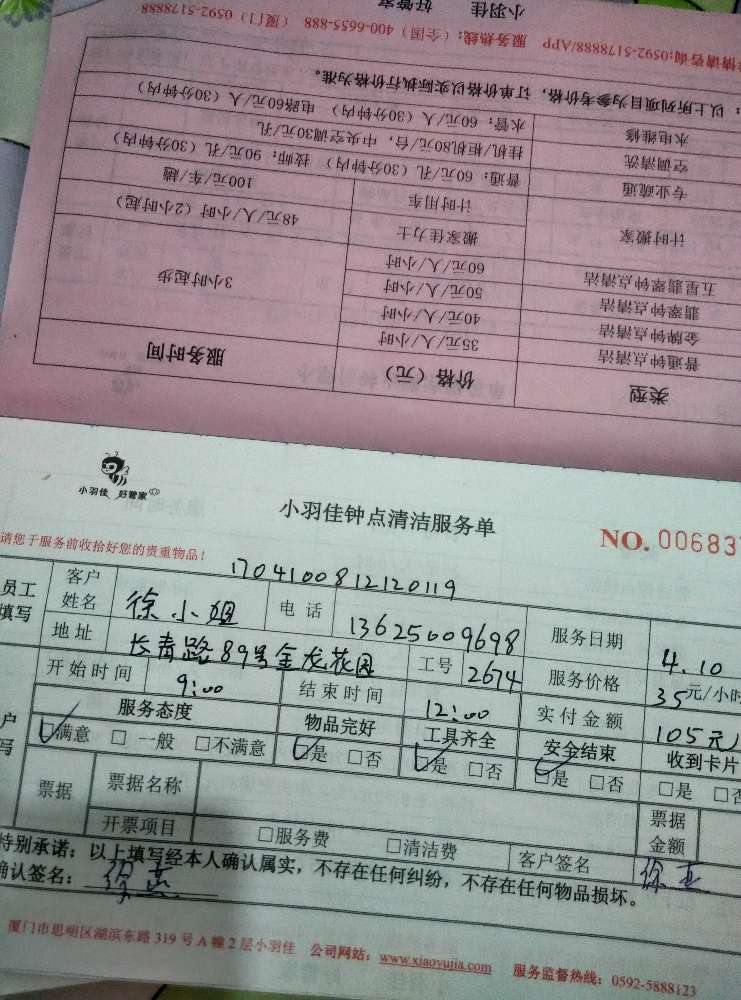 小羽佳 好管家
详情请咨询:0592-5178888/APP 服务热线:(全国)400-6655-888 (厦门)0592-5178888
以上所列项目为参考价格,订单价格以实际执行价格为准。
水电维修 水管:60元/人(30分钟内) 电路60元/人(30分钟内)
空调清洗 挂机/柜机80元/台,中央空调30元/孔
专业疏通 普通:60元/孔(30分钟内) 技师:90元/孔(30分钟内)
计时用车 100元/车/趟
计时搬家 搬家佳力士 48元/人/小时(2小时起)
五星翡翠钟点清洁 60元/人/小时
翡翠钟点清洁 50元/人/小时 3小时起步
金牌钟点清洁 40元/人/小时
普通钟点清洁 35元/人/小时
类型 价格(元) 服务时间
小羽佳 好管家
小羽佳钟点清洁服务单
NO. 00683
请您于服务前收拾好您的贵重物品!
1704100812120119
员工填写 客户姓名 徐小姐 电话 13625009698 服务日期 4.10
地址 长青路89号金龙花园 工号 2674 服务价格 35元/小时
开始时间 9:00 结束时间 12:00 实付金额 105元
服务态度 物品完好 工具齐全 安全结束 收到卡片
☑满意 □一般 □不满意 ☑是 □否 ☑是 □否 ☑是 □否 □是 □否
票据 票据名称 票据金额
开票项目 □服务费 □清洁费 客户签名
特别承诺:以上填写经本人确认属实,不存在任何纠纷,不存在任何物品损坏。
确认签名:
厦门市思明区湖滨东路319号A幢2层小羽佳 公司网站:www.xiaoyujia.com 服务监督热线:0592-5888123